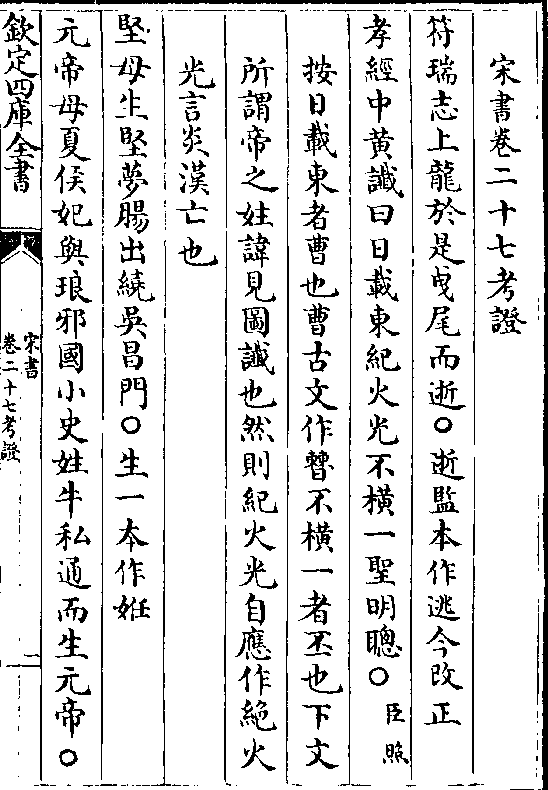 宋書卷二十七考證
符瑞志上龍於是曵尾而逝○逝監本作逃今改正
孝經中黄䜟曰日載東紀火光不橫一聖明聰○臣照
按日載東者曹也曹古文作㯥不橫一者丕也下文
所謂帝之姓諱見圖䜟也然則紀火光自應作絶火
光言炎漢亡也
堅母生堅夢腸出繞吳昌門○生一本作姙
元帝母夏侯妃與琅邪國小史姓牛私通而生元帝○
欽定四庫全書
宋書
卷二十七考證
一